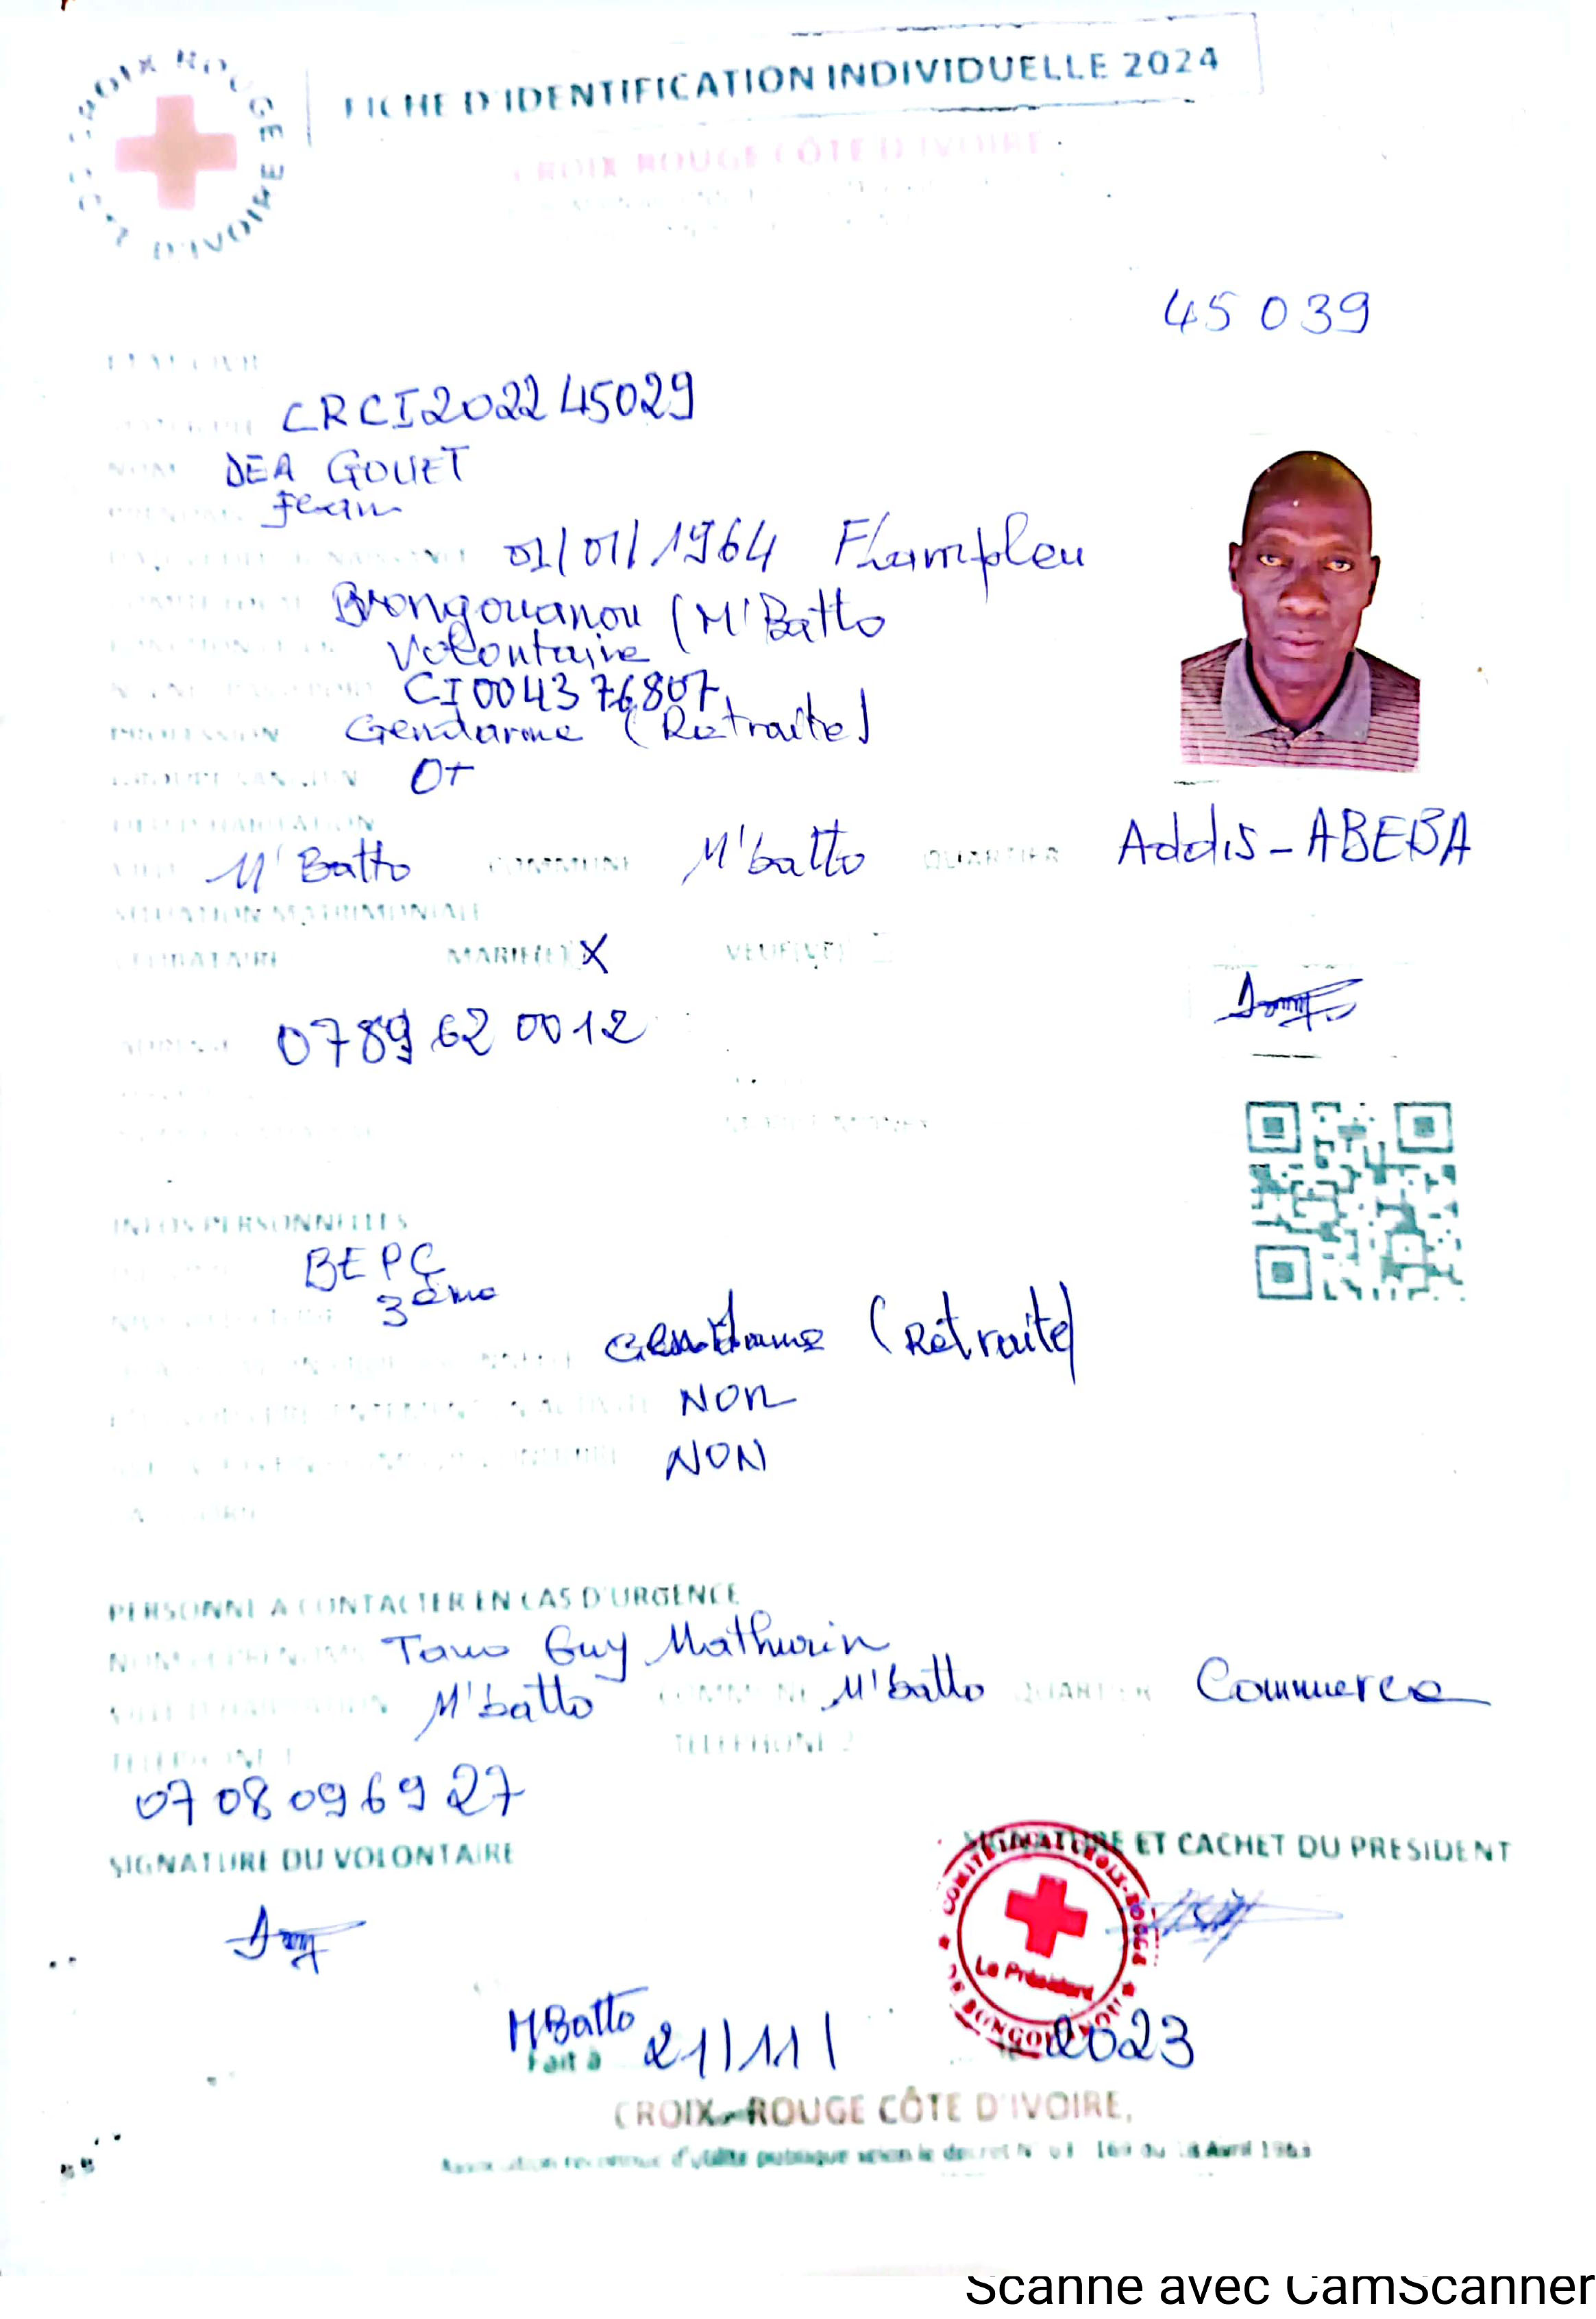 CROIX ROUGE
D'IVOIRE
FICHE D'IDENTIFICATION INDIVIDUELLE 2024
CROIX ROUGE CÔTE D'IVOIRE
45 039
ETAT CIVIL
CRCI2022 45029
NOM DEA GOUET
Jean
01/01/1964 Flampleu
Brongouanou (M'Batto
Volontaire
CI004376807
PROFESSION Gendarme (Retraite)
GROUPE SANGUIN O+
LIEU D'HABITATION
VILLE M'Batto COMMUNE M'batto QUARTIER Addis-ABEBA
SITUATION MATRIMONIALE
CELIBATAIRE MARIE(E) X VEUF(VE)
0789 62 0012
INFOS PERSONNELLES
BEPC
3ème
Gendarme (Retraite)
NON
NON
PERSONNE A CONTACTER EN CAS D'URGENCE
NOM ET PRENOMS Tano Guy Mathurin
VILLE D'HABITATION M'batto COMMUNE M'batto QUARTIER Commerce
TELEPHONE 1 TELEPHONE 2
07 08 09 69 27
SIGNATURE DU VOLONTAIRE SIGNATURE ET CACHET DU PRESIDENT
COMITE CROIX-ROUGE
Le Président
DE BONGOUANOU
MBatto
Fait à 21/11/ 2023
CROIX-ROUGE CÔTE D'IVOIRE,
Association reconnue d'utilité publique selon le decret N° du Avril 1963
Scanné avec CamScanner